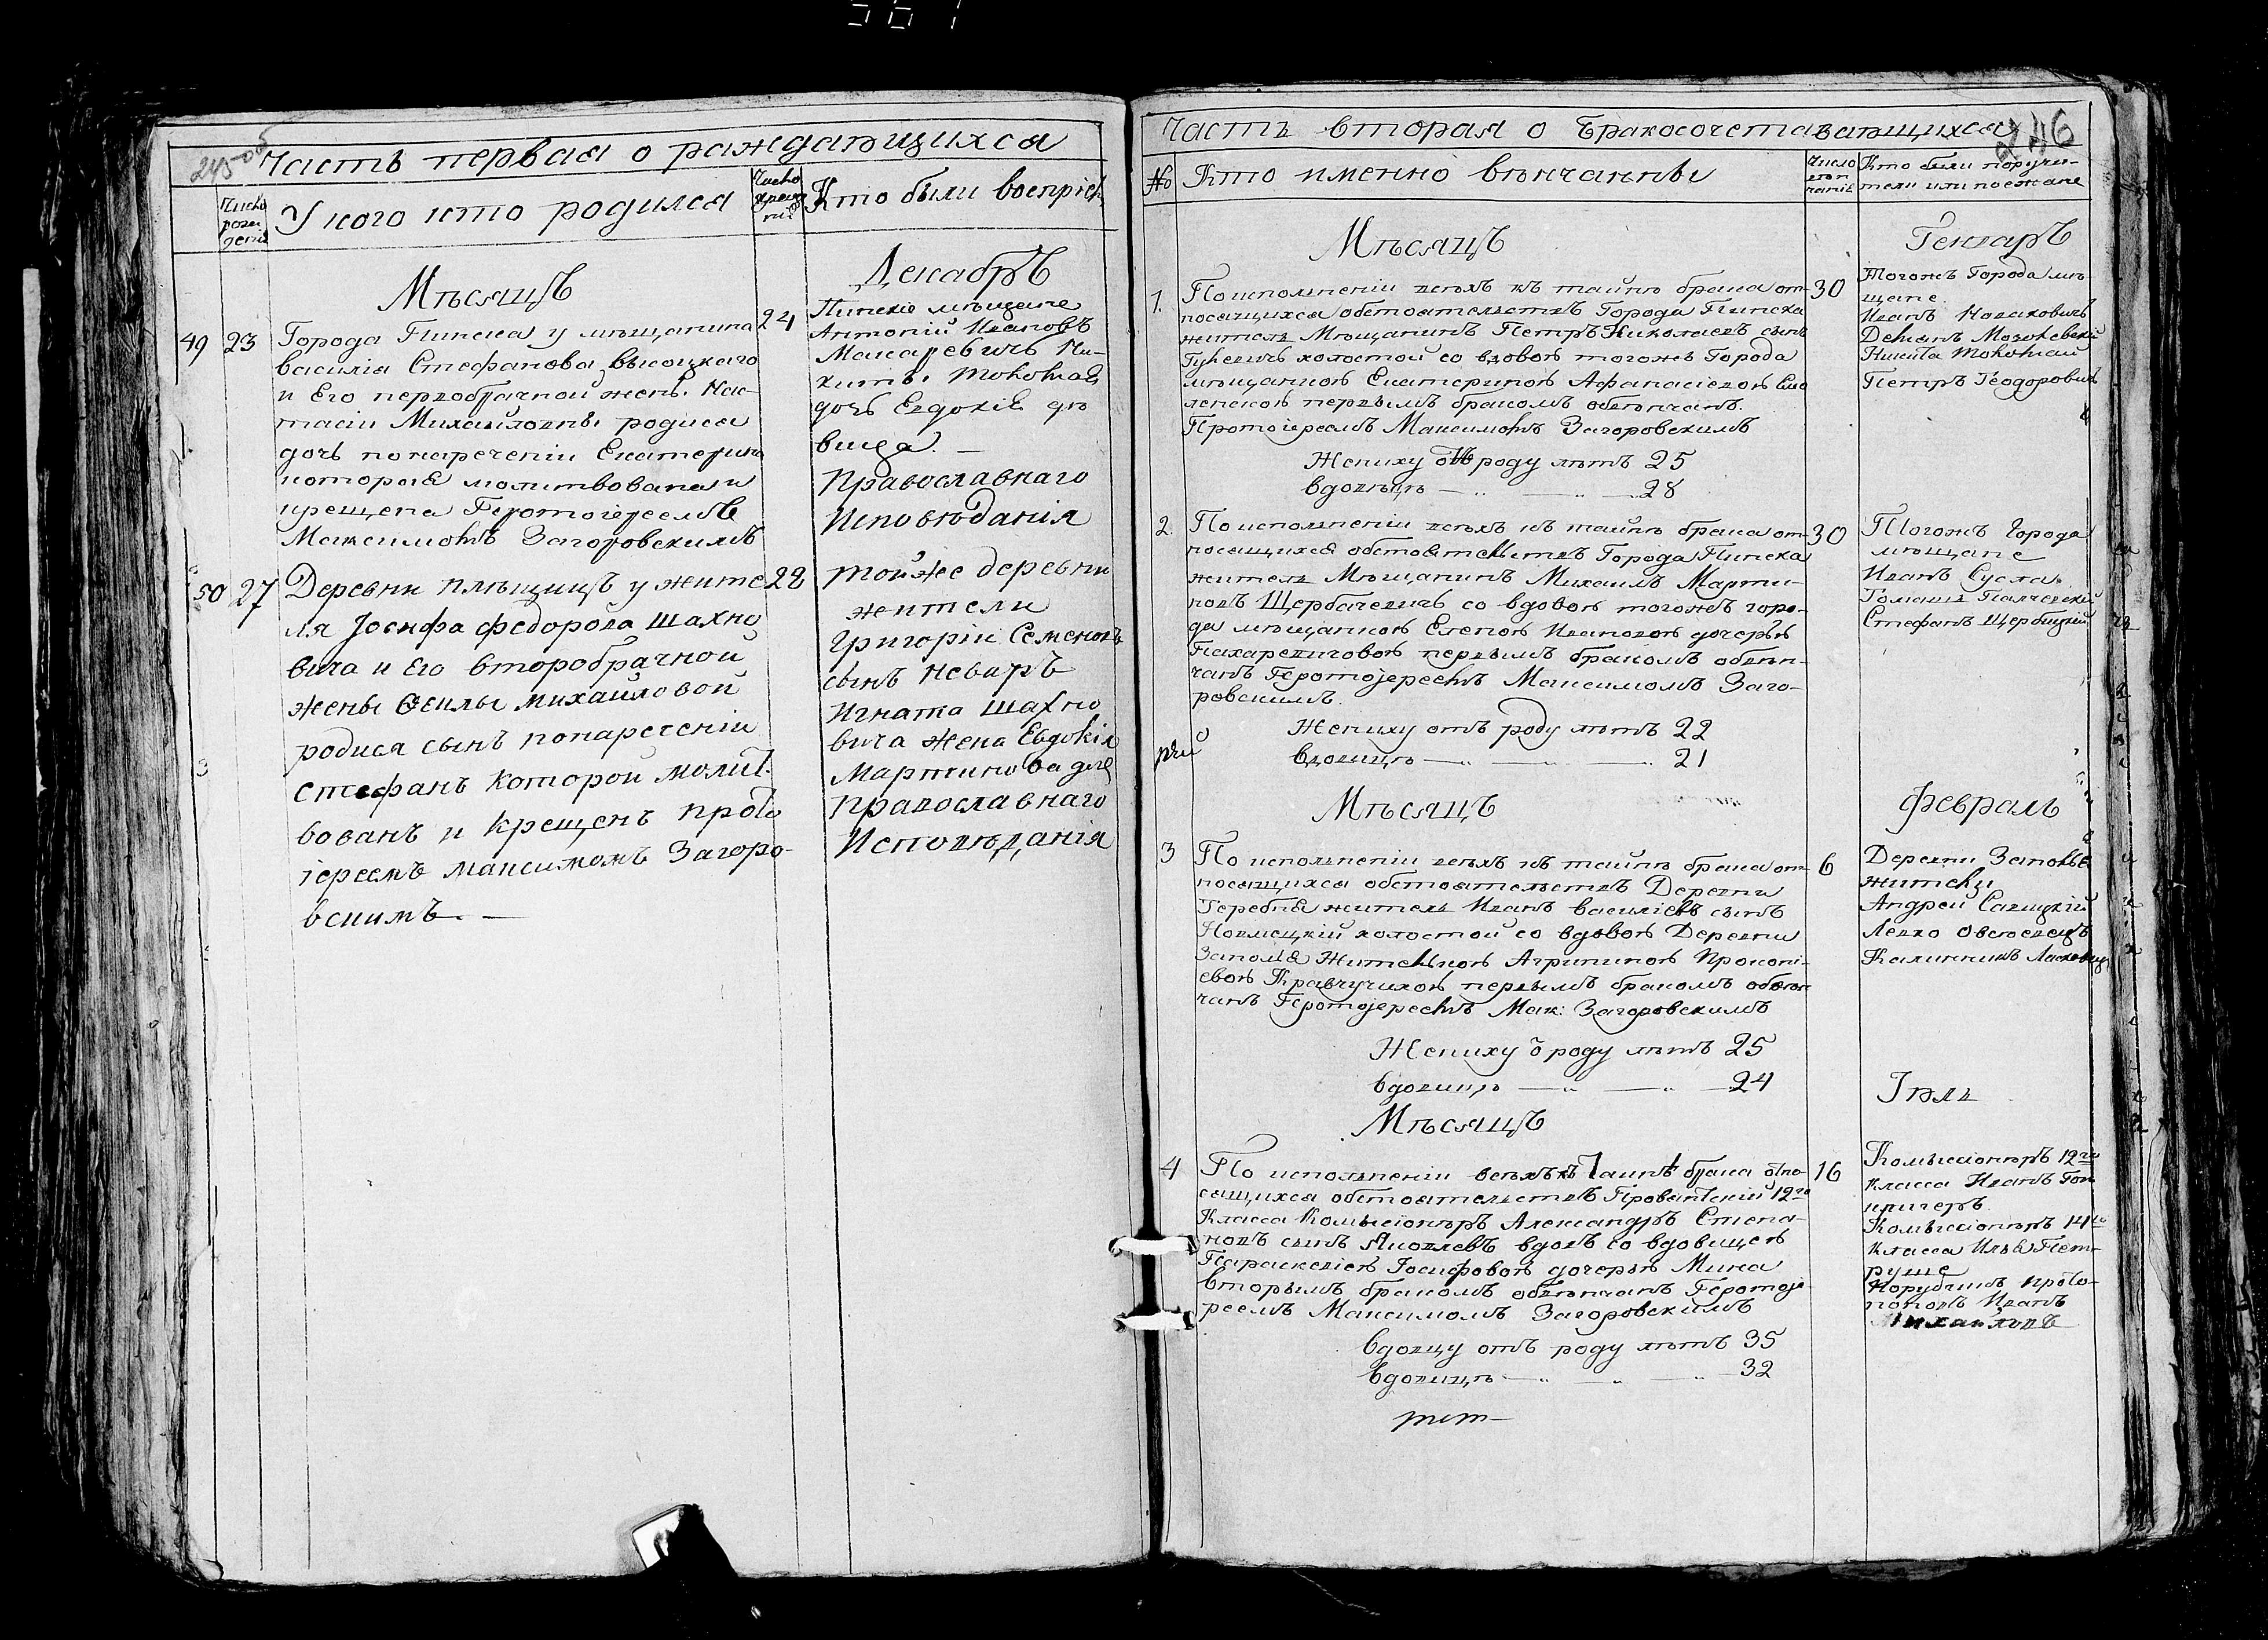 245 об
Часть первая о раждающихся
Число рождения
У кого кто родился
Число крещения
Кто были воспріем
Мѣсяцъ
Декабрь
49 23
Города Пинска у мѣщанина
24
василія Стефанова высоцкаго
и Его первобрачной жены Нас-
тасіи Михайловны родися
дочь по нареченіи Екатерина
которыя молитвована и
крещена Протоіереемъ
Максимомъ Загоровскимъ
Пинскіе мѣщане
Антоній Ивановъ
Макаревичъ Ни-
киты
дочь Евдокія дѣ
вица. —
Православнаго
Исповѣданія
50 27
Деревни плещицъ у жите
28
ля Іосифа федорова шахно
вича и его второбрачной
жены михаиловой
родися сынъ по наречении
стефанъ которой молит
вованъ и крещенъ прото
іереемъ максимомъ Загоро-
вскимъ. —
той же деревни
жители
Григорій Семеновъ
сынъ неваръ
Игната шахно
вича жена Евдокія
Мартинова для
православнаго
Исповѣданія
246
Часть вторая о бракосочетавающихся
№
Кто именно вѣнчанны
Число вѣнчанія
Кто были поручи-
тели или поезжане
Мѣсяцъ
Генваръ
1.
По исполненіи всѣхъ къ тайнѣ брака от-
30
носящихся обстоятельствъ Города Пинска
житель Мѣщанинъ Петръ Николаевъ сынъ
холостой со вдовою тогожъ Города
мѣщанкою Екатериною Афанасіевою
первымъ бракомъ обвѣнчанъ.
Протоіереемъ Максимомъ Загоровскимъ
Жениху отъ роду лѣтъ 25
вдовицѣ — „ — „ — 28
Тогожъ Города мѣ-
щане
Иванъ Новаковичъ
Демянъ
Никита
Петръ Ѳеодоровичъ
2.
По исполненіи всѣхъ къ тайнѣ брака от-
30
носящихся обстоятельствъ Города Пинска
житель Мѣщанинъ Михаилъ Марти-
новъ Щербачевичъ со вдовою тогожъ горо-
да мѣщанкою Еленою Ивановою дочерью
первымъ бракомъ обвѣн-
чанъ Протоіереемъ Максимомъ Заго-
ровскимъ.
Жениху отъ роду лѣтъ 22
вдовицѣ — „ — — 21
Тогожъ Города
мѣщане
Иванъ Сусла
Романъ
Стефанъ Щербицкій
Мѣсяцъ
февраль
3
По исполненіи всѣхъ къ тайнѣ брака от-
6
носящихся обстоятельствъ Деревни
житель Иванъ Василіевъ сынъ
холостой со вдовою Деревни
Заполья Жителькою Агрипиною Прокопі-
евою Кравчучихою первымъ бракомъ обвѣн-
чанъ Протоіереемъ Мак: Загоровскимъ
Жениху о роду лѣтъ 25
вдовицѣ — „ — „ — 24
Деревни Заполья
жители
Андрей Савицкій
Левко
Калинникъ
Мѣсяцъ
Іюль
4
По исполненіи всѣхъ къ таинѣ брака отно-
16
сящихся обстоятельствъ Провиантскій 12го
Класса Комысіонеръ Александръ Степа-
новъ сынъ Яковлевъ вдовъ со вдовицею
Параскевіею Іосифовою дочерью Мика
вторымъ бракомъ обвѣнчанъ Протоіе-
реемъ Максимомъ Загоровскимъ
вдовцу отъ роду лѣтъ 35
вдовицѣ — „ — „ — „ — 32
Комысіонеръ 12го
Класса Иванъ
Комысіонеръ 14го
класса Илья Пет-
руше
Иванъ
Михаиловъ